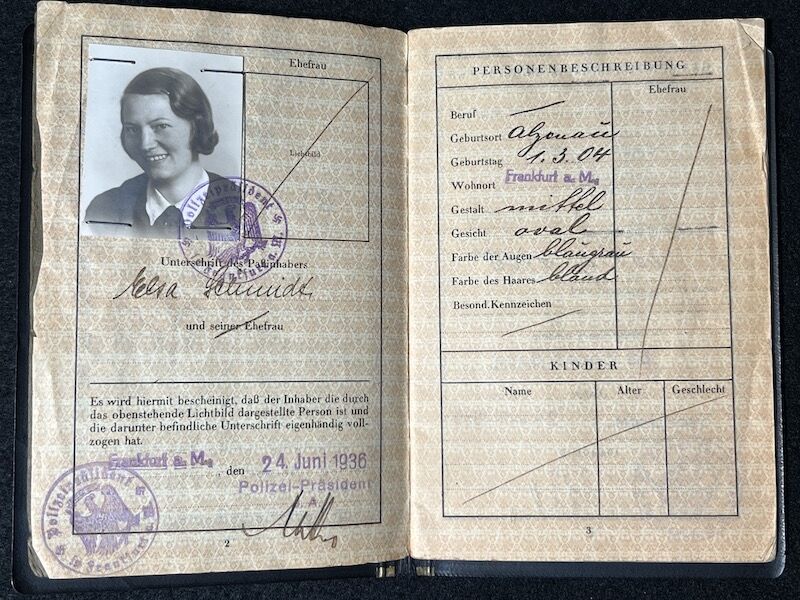 Ehefrau
Lichtbild
Polizeipräsident
Unterschrift des Paßinhabers
Elsa Schmidt
und seiner Ehefrau
Es wird hiermit bescheinigt, daß der Inhaber die durch
das obenstehende Lichtbild dargestellte Person ist und
die darunter befindliche Unterschrift eigenhändig voll-
zogen hat.
Frankfurt a. M., den 24. Juni 1936
Polizei-Präsident
A
Polizeipräsident
in Frankfurt
2
PERSONENBESCHREIBUNG
Ehefrau
Beruf —
Geburtsort Alzenau
Geburtstag 1.3.04
Wohnort Frankfurt a. M.
Gestalt mittel
Gesicht oval
Farbe der Augen blaugrau
Farbe des Haares blond
Besond. Kennzeichen
KINDER
Name Alter Geschlecht
3